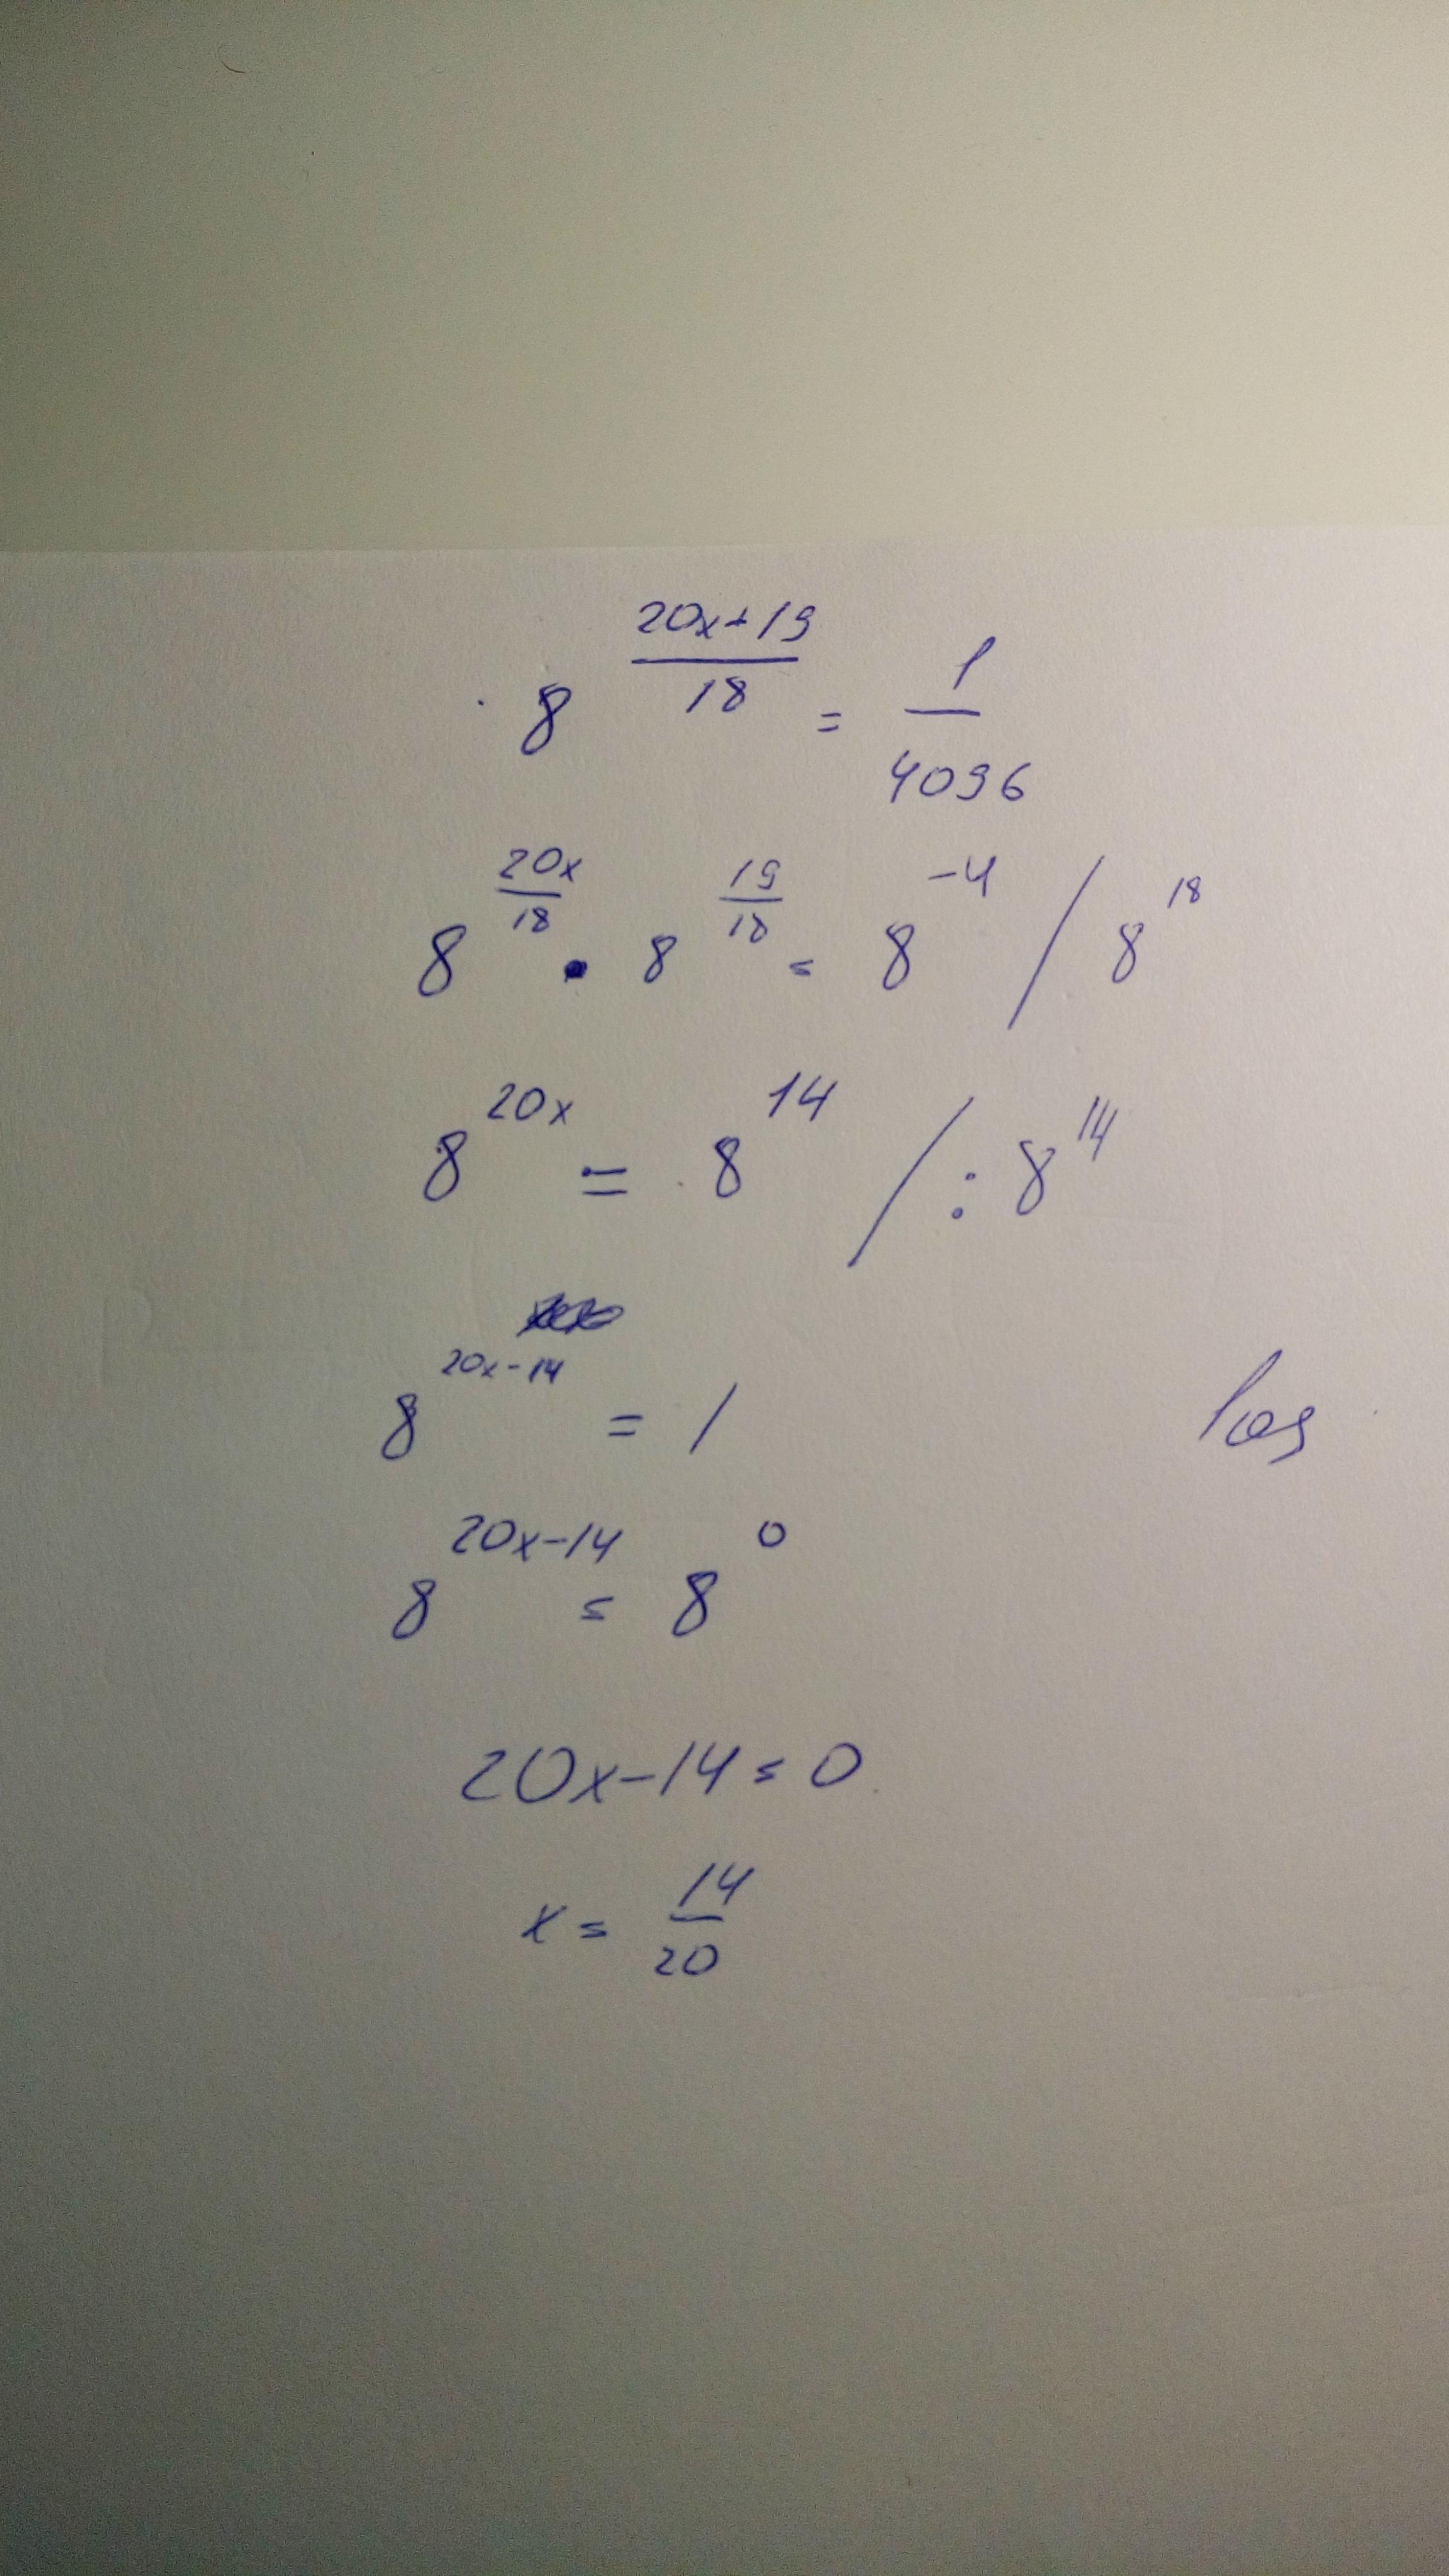 8^((20x+19)/18) = 1/4096
8^(20x/18) • 8^(19/18) = 8^(-4) / 8^18
8^(20x) = 8^14 / : 8^14
8^(20x-14) = 1
log
8^(20x-14) = 8^0
20x-14 = 0
x = 14/20